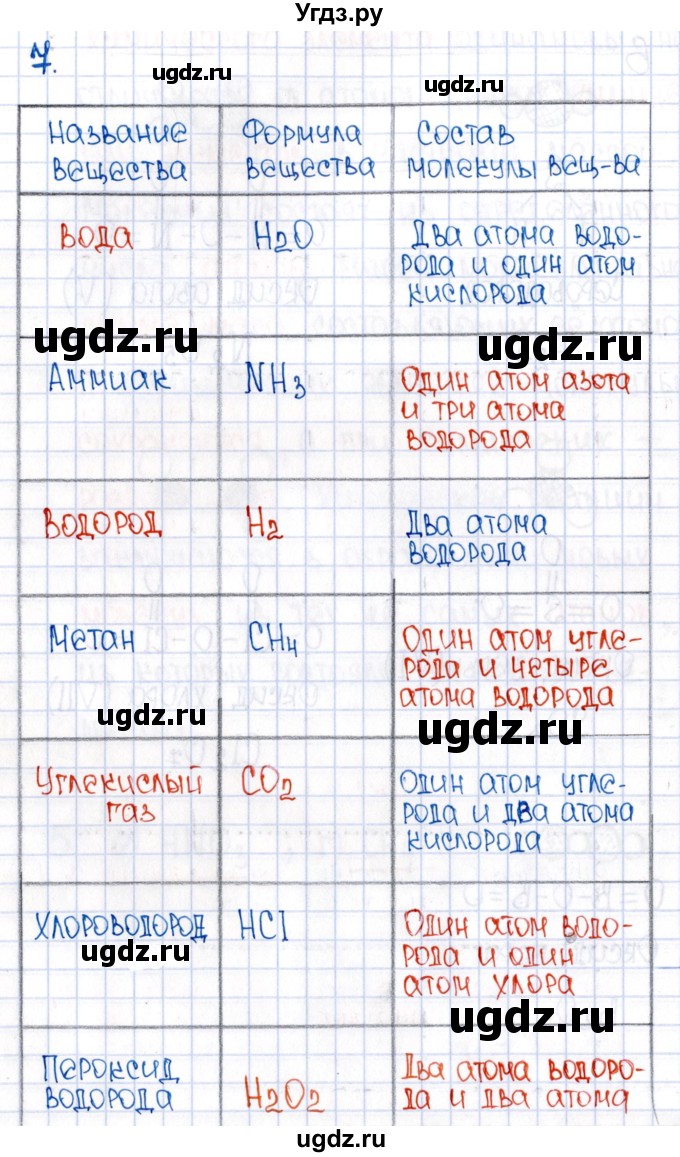 Угдз.ру
7.
ugdz.ru
ugdz.ru
Название вещества
Формула вещества
Состав молекулы вещ-ва
Вода
H2O
Два атома водо-
рода и один атом
кислорода
ugdz.ru
ugdz.ru
Аммиак
NH3
Один атом азота
и три атома
водорода
Водород
H2
Два атома
водорода
Метан
CH4
Один атом угле-
рода и четыре
атома водорода
ugdz.ru
ugdz.ru
Углекислый
газ
CO2
Один атом угле-
рода и два атома
кислорода
Хлороводород
HCl
Один атом водо-
рода и один
атом хлора
ugdz.ru
ugdz.ru
Пероксид
водорода
H2O2
Два атома водоро-
да и два атома
ugdz.ru